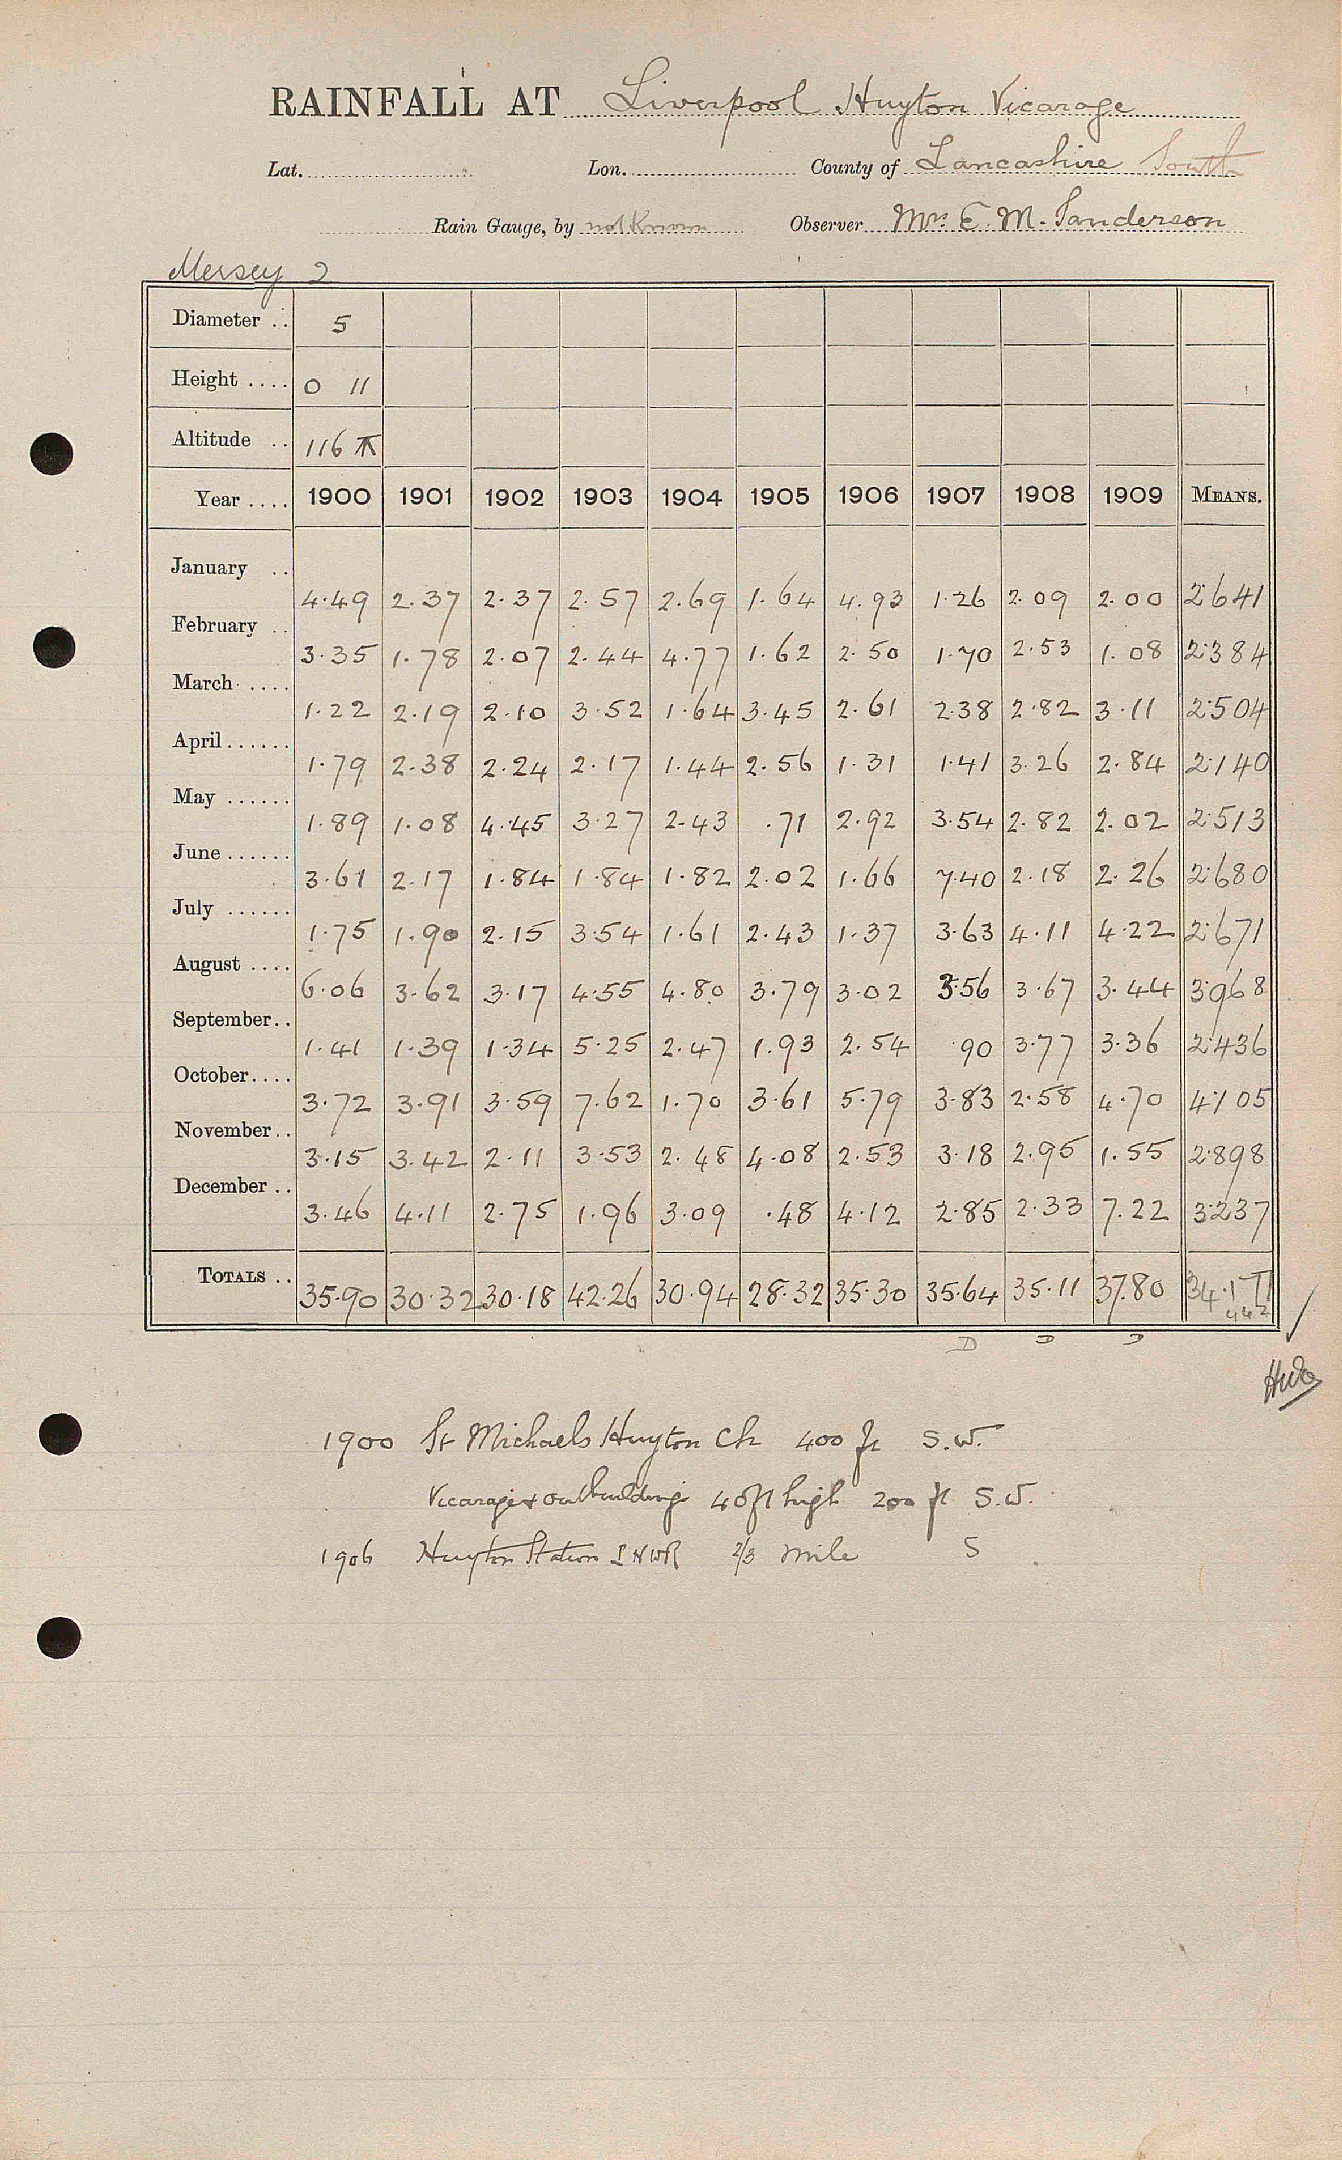 RAINFALL AT Liverpool Huyton Vicarage
Lat. Lon. County of Lancashire South
Rain Gauge, by not Known Observer Mrs E. M. Sanderson
Mersey 2
Diameter .. 5
Height .... 0 11
Altitude .. 116
Year .... 1900 1901 1902 1903 1904 1905 1906 1907 1908 1909 MEANS.
January .. 4.49 2.37 2.37 2.57 2.69 1.64 4.93 1.26 2.09 2.00 2.641
February .. 3.35 1.78 2.07 2.44 4.77 1.62 2.50 1.70 2.53 1.08 2.384
March .... 1.22 2.19 2.10 3.52 1.64 3.45 2.61 2.38 2.82 3.11 2.504
April ...... 1.79 2.38 2.24 2.17 1.44 2.56 1.31 1.41 3.26 2.84 2.140
May ...... 1.89 1.08 4.45 3.27 2.43 .71 2.92 3.54 2.82 2.02 2.513
June ...... 3.61 2.17 1.84 1.84 1.82 2.02 1.66 7.40 2.18 2.26 2.680
July ...... 1.75 1.90 2.15 3.54 1.61 2.43 1.37 3.63 4.11 4.22 2.671
August .... 6.06 3.62 3.17 4.55 4.80 3.79 3.02 3.56 3.67 3.44 3.968
September .. 1.41 1.39 1.34 5.25 2.47 1.93 2.54 90 3.77 3.36 2.436
October .... 3.72 3.91 3.59 7.62 1.70 3.61 5.79 3.83 2.58 4.70 4.105
November .. 3.15 3.42 2.11 3.53 2.48 4.08 2.53 3.18 2.95 1.55 2.898
December .. 3.46 4.11 2.75 1.96 3.09 .48 4.12 2.85 2.33 7.22 3.237
TOTALS .. 35.90 30.32 30.18 42.26 30.94 28.32 35.30 35.64 35.11 37.80 34.177
442
D D D
1900 St Michaels Huyton Ch 400 ft S.W.
Vicarage & outbuildings 40ft high 200 ft S.W.
1906 Huyton Station L N W R 2/3 mile S